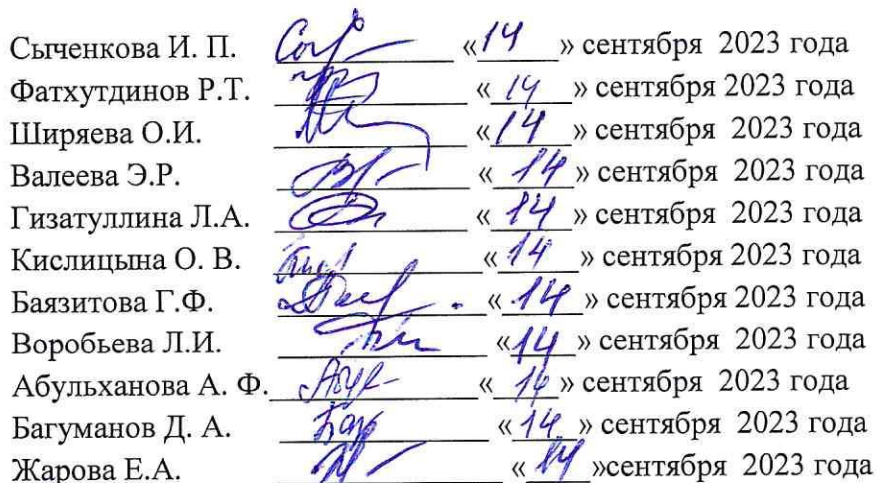 Сыченкова И. П. «14» сентября 2023 года
Фатхутдинов Р.Т. «14» сентября 2023 года
Ширяева О.И. «14» сентября 2023 года
Валеева Э.Р. «14» сентября 2023 года
Гизатуллина Л.А. «14» сентября 2023 года
Кислицына О. В. «14» сентября 2023 года
Баязитова Г.Ф. «14» сентября 2023 года
Воробьева Л.И. «14» сентября 2023 года
Абульханова А. Ф. «14» сентября 2023 года
Багуманов Д. А. «14» сентября 2023 года
Жарова Е.А. «14»сентября 2023 года